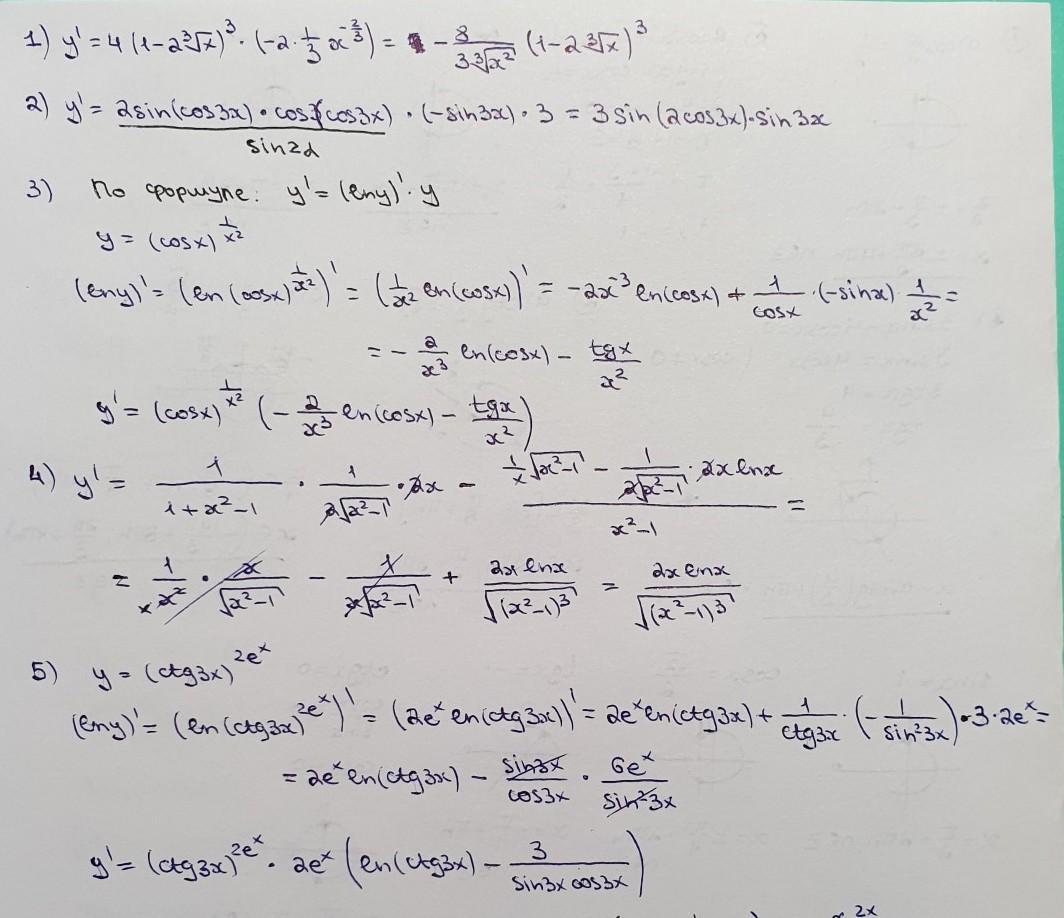 1) y' = 4 (1-2∛x)³ · (-2 · 1/3 x^(-2/3)) = - 8/(3∛x²) (1-2∛x)³
2) y' = 2sin(cos3x) · cos(cos3x) · (-sin3x) · 3 = 3 sin(2cos3x)·sin3x
sin2α
3) По формуле: y' = (lny)' · y
y = (cosx)^(1/x²)
(lny)' = (ln(cosx)^(1/x²))' = (1/x² ln(cosx))' = -2x⁻³ ln(cosx) + 1/cosx · (-sinx) · 1/x² =
= - 2/x³ ln(cosx) - tgx/x²
y' = (cosx)^(1/x²) (- 2/x³ ln(cosx) - tgx/x²)
4) y' = 1/(1+x²-1) · 1/(2√(x²-1)) · 2x - (1/x √(x²-1) - 1/(2√(x²-1)) · 2x lnx)/(x²-1) =
= 1/x² · x/√(x²-1) - 1/(x√(x²-1)) + 2x lnx/√((x²-1)³) = 2x lnx/√((x²-1)³)
5) y = (ctg3x)^(2eˣ)
(lny)' = (ln(ctg3x)^(2eˣ))' = (2eˣ ln(ctg3x))' = 2eˣ ln(ctg3x) + 1/ctg3x · (- 1/sin²3x) · 3 · 2eˣ =
= 2eˣ ln(ctg3x) - sin3x/cos3x · 6eˣ/sin²3x
y' = (ctg3x)^(2eˣ) · 2eˣ (ln(ctg3x) - 3/(sin3x cos3x))